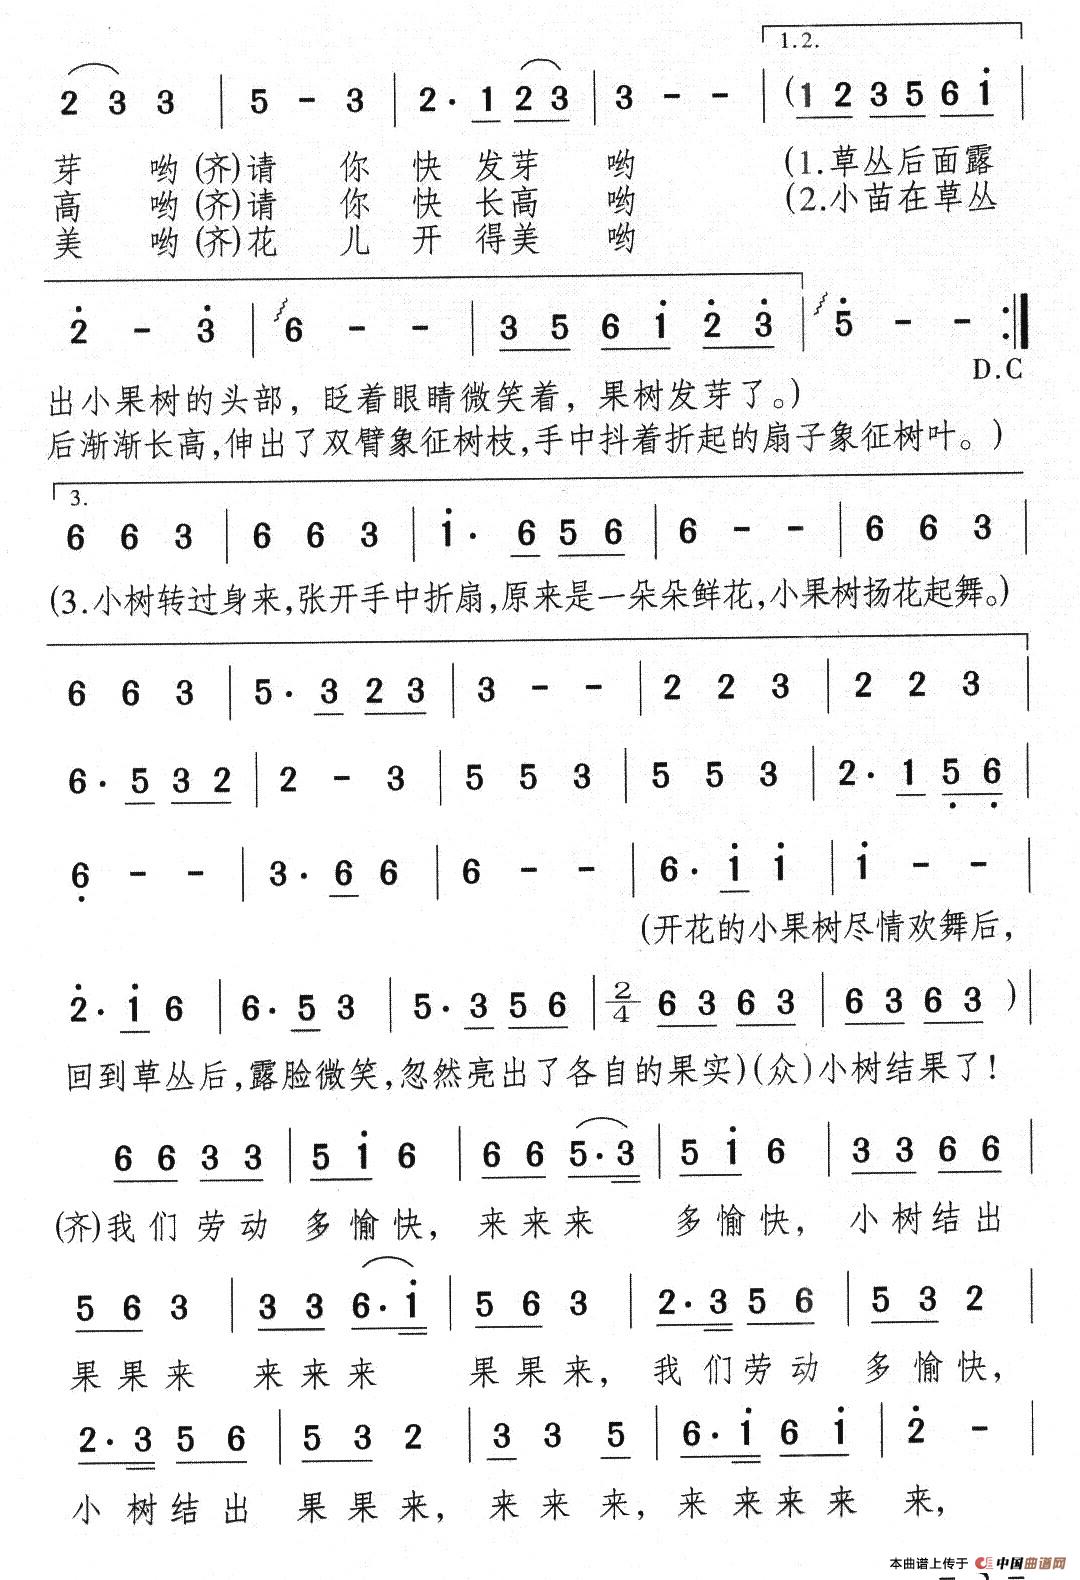 1.2.
2 3 3 | 5 - 3 | 2· 1 2 3 | 3 - - | (1 2 3 5 6 i
芽 哟 (齐)请 你 快 发芽 哟 (1.草丛后面露
高 哟 (齐)请 你 快 长高 哟 (2.小苗在草丛
美 哟 (齐)花 儿 开 得美 哟
2 - 3 | 6 - - | 3 5 6 i 2 3 | 5 - - :|
D.C
出小果树的头部，眨着眼睛微笑着，果树发芽了。)
后渐渐长高,伸出了双臂象征树枝,手中抖着折起的扇子象征树叶。)
3.
6 6 3 | 6 6 3 | i· 6 5 6 | 6 - - | 6 6 3 |
(3.小树转过身来,张开手中折扇,原来是一朵朵鲜花,小果树扬花起舞。)
6 6 3 | 5· 3 2 3 | 3 - - | 2 2 3 | 2 2 3 |
6· 5 3 2 | 2 - 3 | 5 5 3 | 5 5 3 | 2· 1 5 6 |
6 - - | 3· 6 6 | 6 - - | 6· i i | i - - |
(开花的小果树尽情欢舞后,
2· i 6 | 6· 5 3 | 5· 3 5 6 | 2/4 6 3 6 3 | 6 3 6 3 ) |
回到草丛后,露脸微笑,忽然亮出了各自的果实)(众)小树结果了!
6 6 3 3 | 5 i 6 | 6 6 5·3 | 5 i 6 | 3 3 6 6 |
(齐)我们 劳动 多愉快, 来来来 多愉快, 小树结出
5 6 3 | 3 3 6·i | 5 6 3 | 2·3 5 6 | 5 3 2 |
果果来 来来来 果果来, 我们劳动 多愉快,
2·3 5 6 | 5 3 2 | 3 3 5 | 6·i 6 i | 2 - |
小树结出 果果来, 来来来, 来来来来 来,
本曲谱上传于 中国曲谱网